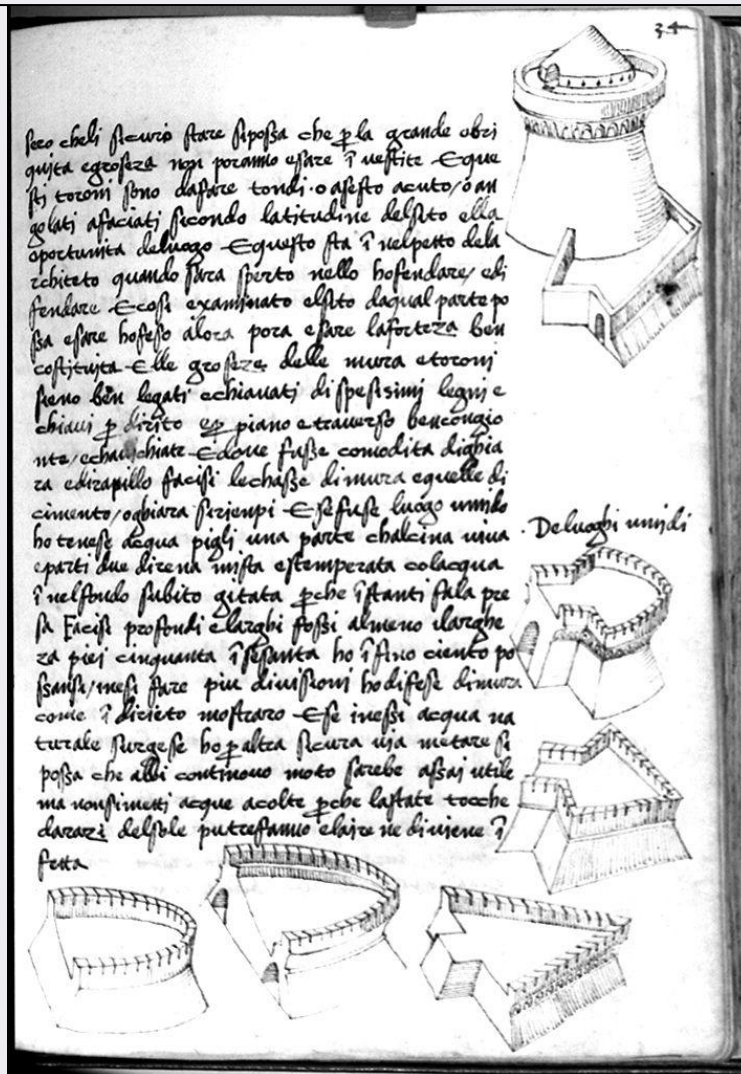 34
sero cheli sicuro stare siposſa che p̱ la grande obri
quita egroseza non poranno esare ĩ uestite Eque
sti toroni sono dafare tondi · o asesto acuto / o an
golati afaciati sicondo latitudine delsito ella
oportunita deluogo Equesto sta ĩ nelpetto dela
rchiteto quando sara sperto nello hofendare / edi
fendare Ecosi examinato elsito daqual parte po
ssa esare hofeso alora pora esare laforteza ben
costituita Elle groseze delle mura etoroni
sieno ben legati echiauati di spesisimi legni e
chiaui p̱ dirito ep̱ piano etrauerso bencongio
nte / Edoue fusse comodita dighia
ra edirapillo facisi lechasse dimura equelle di
cimento / oghiara Esefuse luogo umido
ho tenese acqua pigli una parte chalcina uiua
eparti due direna mista estemperata colacqua
ĩ nelfondo subito gitata p̱che ĩstanti fala pre
sa Facisi profondi elarghi fossi almeno ilarghe
za piei cinquanta ĩsesanta ho ĩfino ciento po
ssansi / inesi fare piu diuisioni hodifese dimura
come ĩ dirieto mostraro Ese inessi acqua na
turale surgese ho p̱ altra sicura uia metare si
possa che abi continouo moto sarebe assai utile
ma nonsimetti acque acolte p̱che lastate tocche
darazi delsole putrefanno elaire ne diuiene ĩ
fetta
· Deluoghi umidi